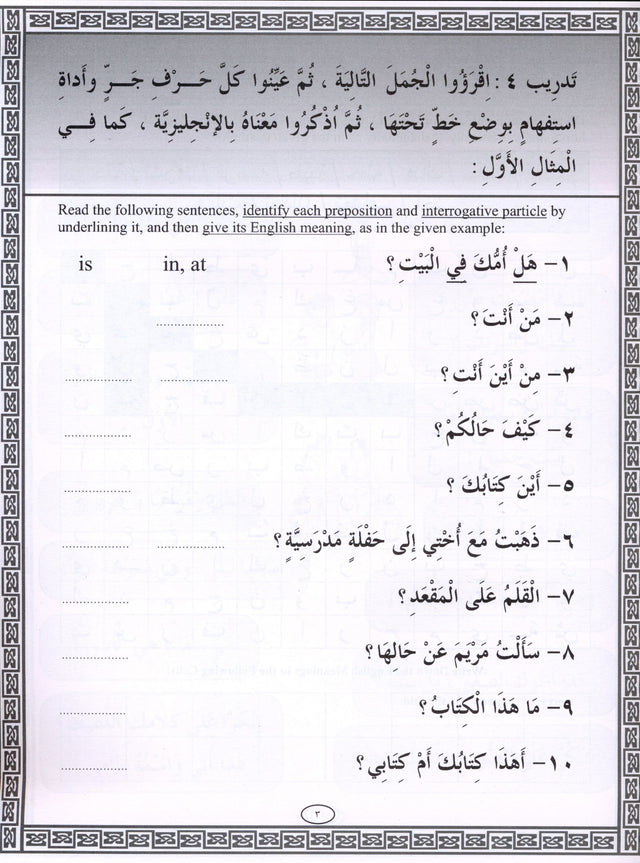 تَدرِيب ٤ : اِقْرَؤُوا الْجُمَلَ التَّالِيَةَ ، ثُمَّ عَيِّنُوا كَلَّ حَـــرْفِ جَـــرٍّ وأَداةِ
استفهامٍ بِوِضْعِ خَطٍّ تَحْتَهَا ، ثُمَّ اُذْكُرُوا مَعْنَاهُ بِالإنْجِليزِيَّة ، كَما فِـــي
الْمِثَالِ الأَوَّلِ :
Read the following sentences, identify each preposition and interrogative particle by
underlining it, and then give its English meaning, as in the given example:
١ – هَلْ أُمُّكَ فِي الْبَيْتِ ؟ in, at is
٢ – مَنْ أَنْتَ ؟ ....................
٣ – منْ أَيْنَ أَنْتِ ؟ .................... ....................
٤ – كَيْفَ حَالُكُمْ؟ ....................
٥ – أَيْنَ كِتَابُكَ ؟ ....................
٦ – ذَهَبْتُ مَعَ أُخْتِي إِلَى حَفْلَةٍ مَدْرَسِيَّةٍ ؟ .................... ....................
٧ – الْقَلَمُ عَلَى الْمَقْعَدِ ؟ ....................
٨ – سَأَلْتُ مَرْيَمَ عَنْ حَالِهَا ؟ ....................
٩ – مَا هَذَا الْكِتَابُ ؟ ....................
١٠ – أَهَذَا كِتَابُكَ أَمْ كِتَابِي ؟ ....................
٣